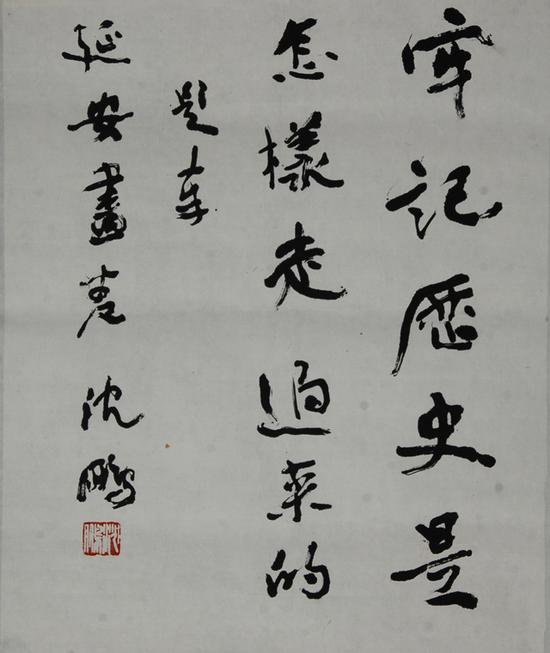 牢記歷史是
怎樣走過來的
題
延安畫卷 沈鵬